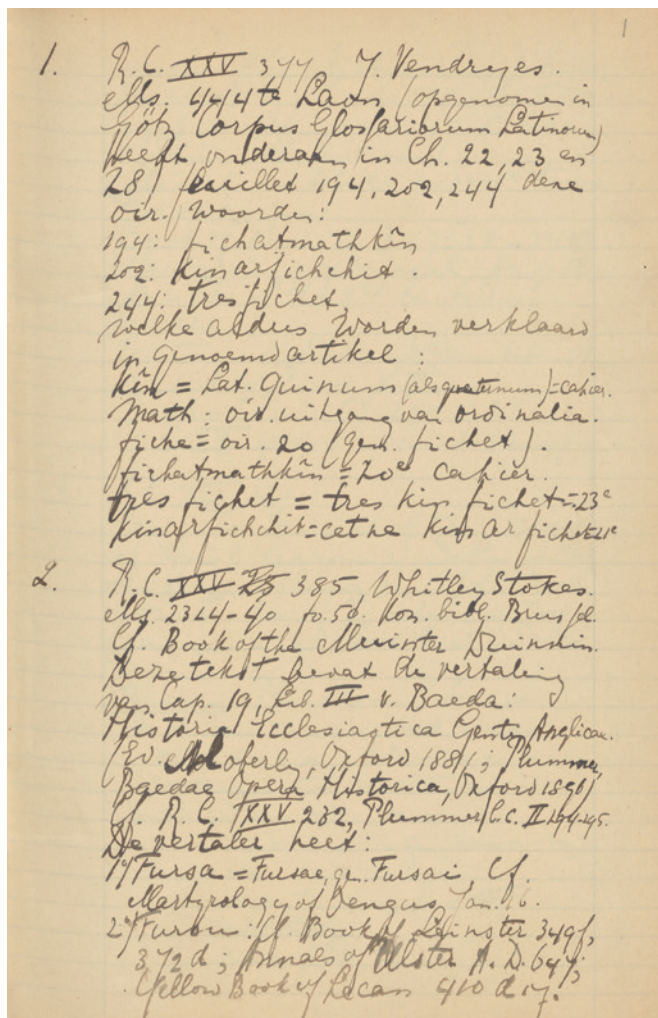 1
1. R.C. XXV 377 J. Vendryes.
Ms. 444 te Laon (opgenomen in
Götz Corpus Glossariorum Latinorum)
heeft onderaan in Ch. 22, 23 en
28, feuillet 194, 202, 244 deze
oir. woorden:
194: fichatmathkîn
202: kinarfichchit.
244: tresfichet,
welke aldus worden verklaard
in genoemd artikel:
kîn = Lat. Quinum (als quaternum) = cahier.
Math: oir. uitgang van ordinalia.
fiche = oir. 20 (gen. fichet).
fichatmathkîn = 20e cahier.
tres fichet = tres kin fichet = 23e
kinarfichchit = cetne kin ar fichet = 21e
2. R.C. XXV 385, Whitley Stokes.
Ms. 2324-40 fo. 50. Kon. bibl. Brussel.
Cf. Book of the Duinnin.
Deze tekst bevat de vertaling
van Cap. 19, Lib. III v. Baeda:
Historia Ecclesiastica Gentis Anglicae.
(Ed. Moberly, Oxford 1881; Plummer,
Baedae Opera Historica, Oxford 1896)
Cf. R.C. XXV 232, Plummer l.c. II 194-195.
De vertaler heet:
1º/ Fursa = Fursae, gen. Fursai, Cf.
Martyrology of Oengus, Jan. 16.
2º/ Furou: Cf. Book of Leinster 349f,
372d; Annals of Ulster A.D. 647;
Yellow Book of Lecan 410 d 17.